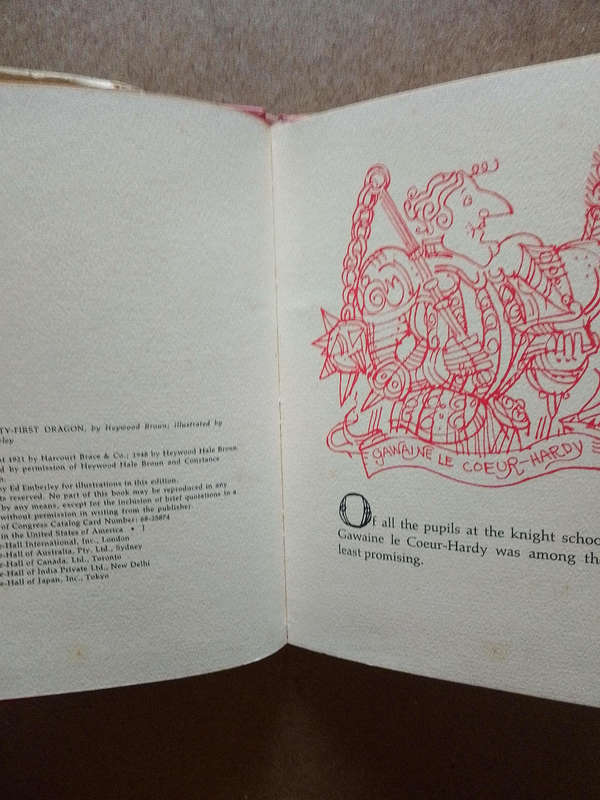 TY-FIRST DRAGON, by Heywood Broun; illustrated by
ley
t 1921 by Harcourt Brace & Co.; 1948 by Heywood Hale Broun
d by permission of Heywood Hale Broun and Constance
n.
y Ed Emberley for illustrations in this edition.
ts reserved. No part of this book may be reproduced in any
by any means, except for the inclusion of brief quotations in a
without permission in writing from the publisher.
of Congress Catalog Card Number: 68-25874
in the United States of America • J
e-Hall International, Inc., London
e-Hall of Australia, Pty. Ltd., Sydney
e-Hall of Canada, Ltd., Toronto
e-Hall of India Private Ltd., New Delhi
e-Hall of Japan, Inc., Tokyo
GAWAINE LE COEUR-HARDY
Of all the pupils at the knight schoo
Gawaine le Coeur-Hardy was among th
least promising.